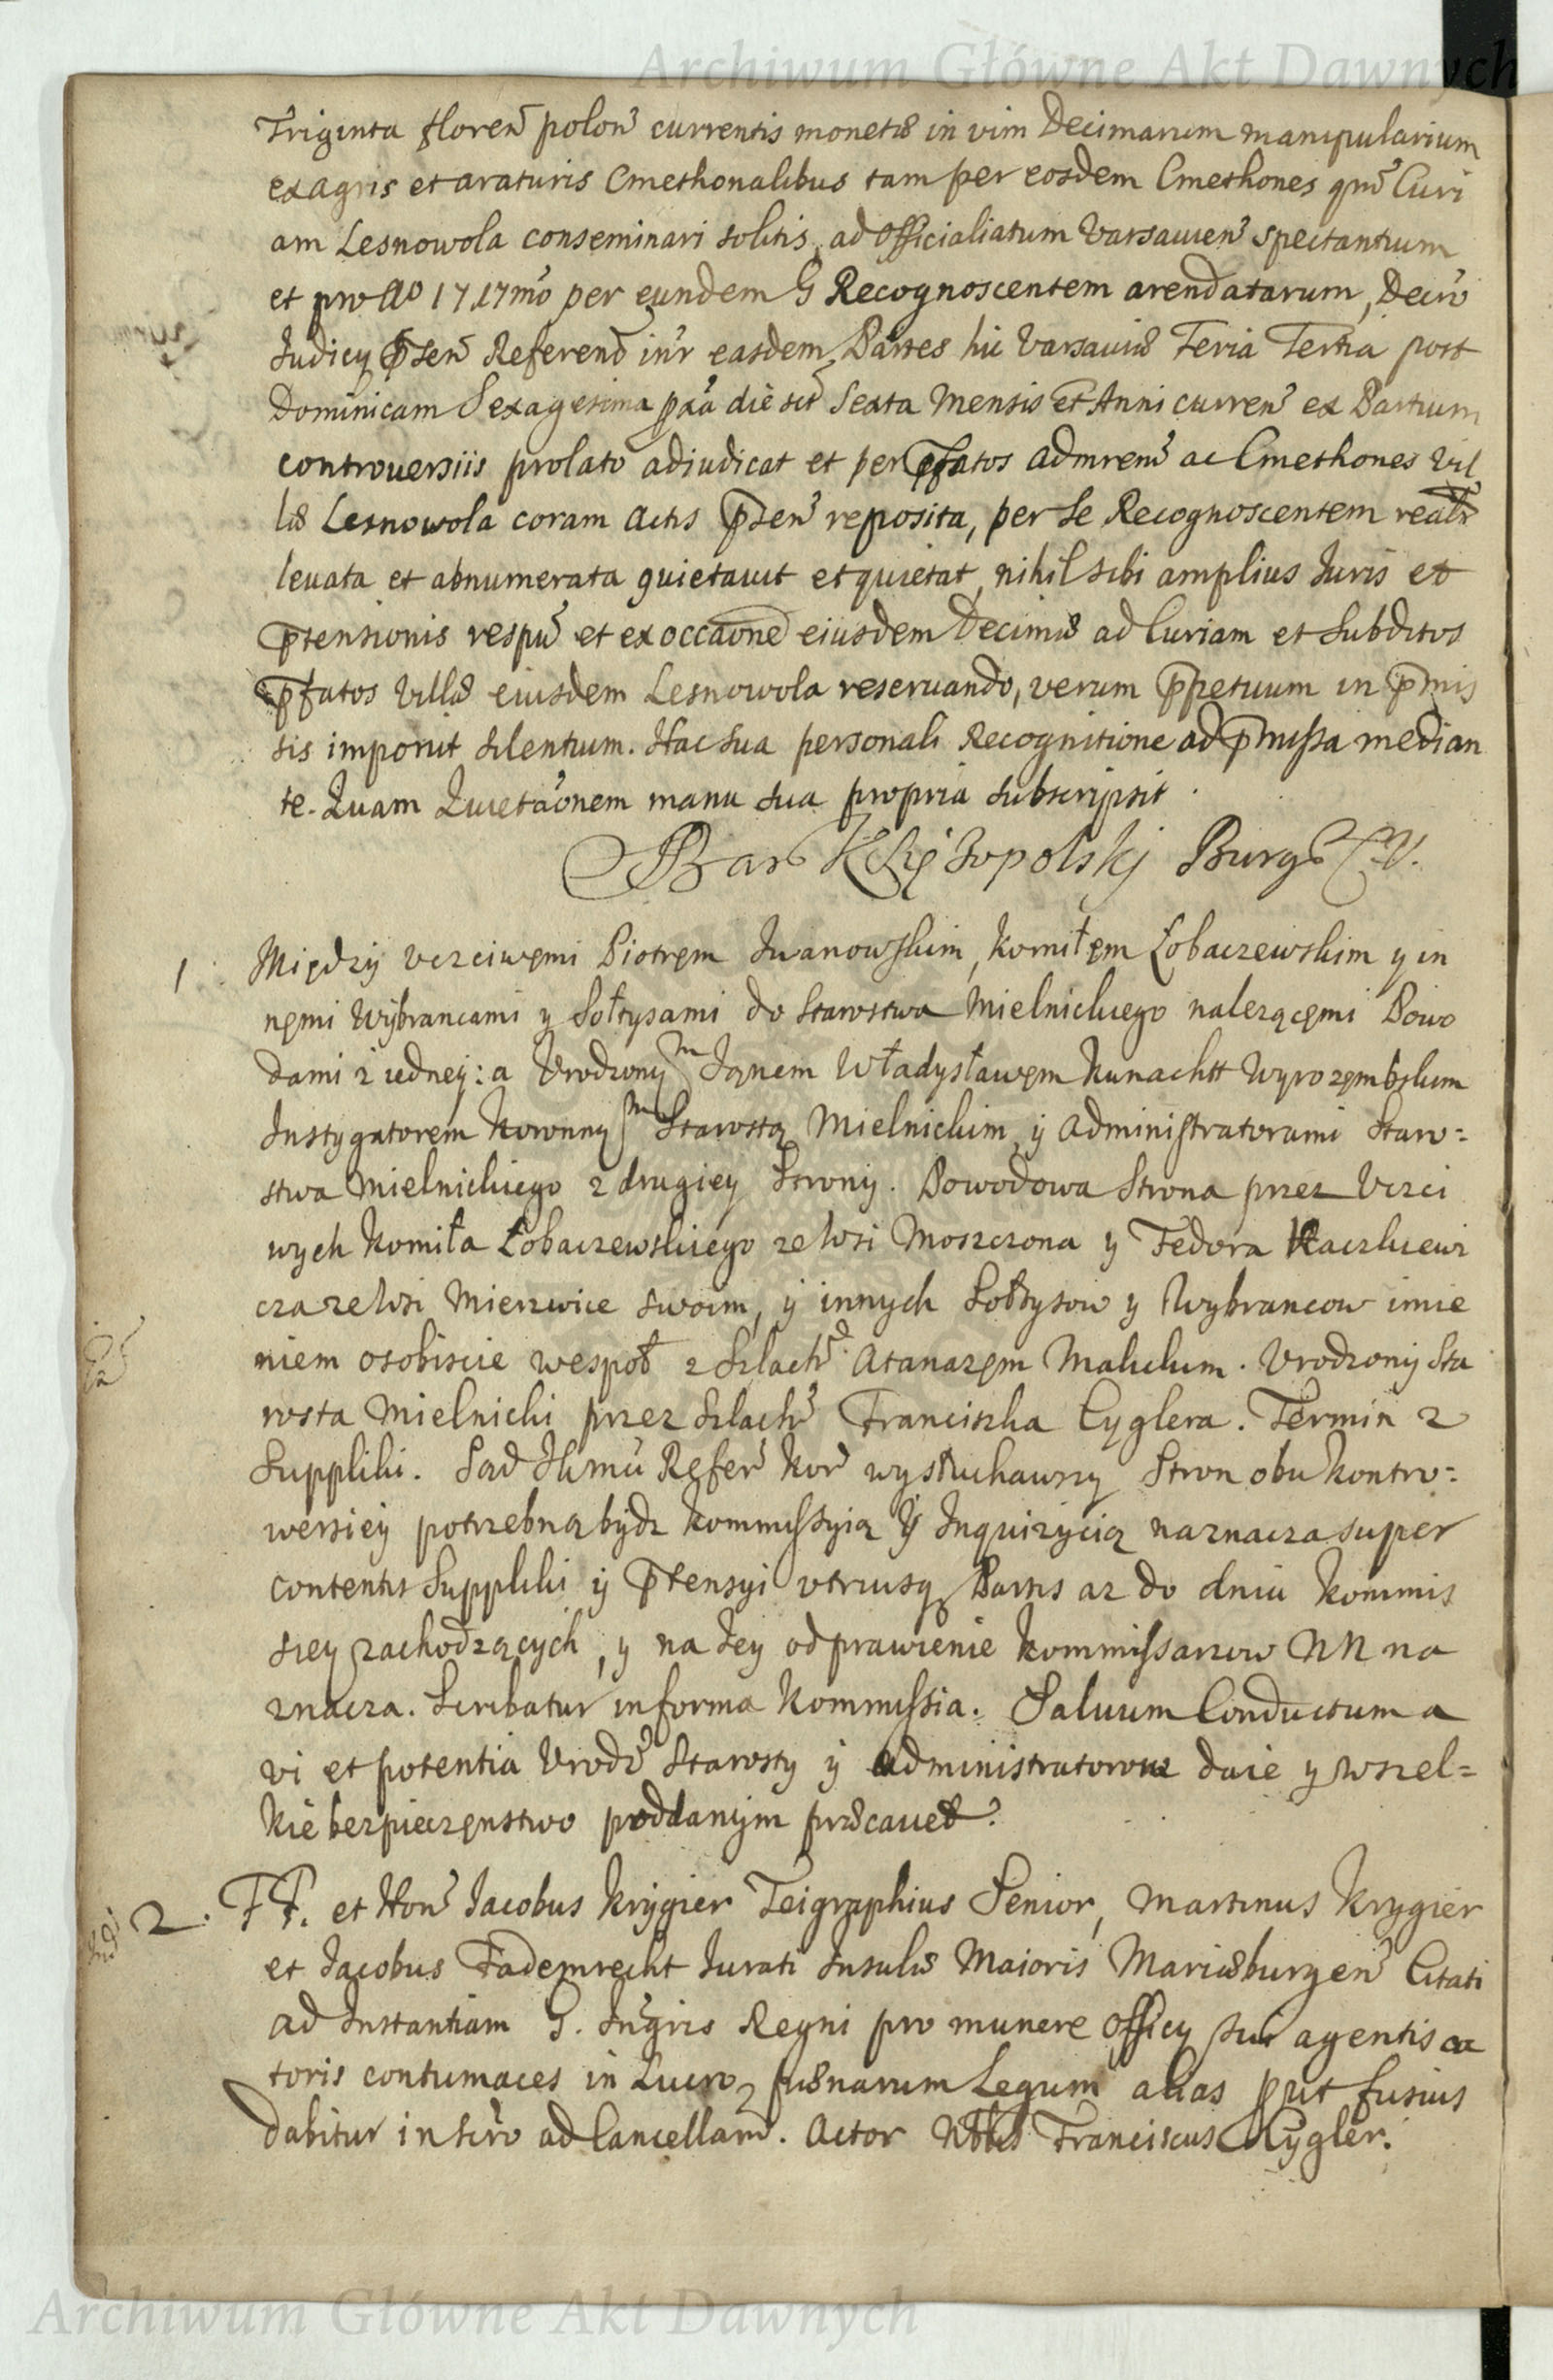 Archiwum Główne Akt Dawnych
Triginta floren polon currentis monetæ in vim Decimarum manipularium
ex agris et araturis Cmethonalibus tam per eosdem Cmethones quā Curi
am Lesnowola conseminari solitis, ad Officialiatum Varsavien spectantium
et pro Aō 1717mō per eundem G Recognoscentem arendatarum, Decrō
Judicy p̄sen Referend int̄r easdem Partes hic Varsaviæ Feria Tertia post
Dominicam Sexagesima p̄xa die sct Sexta Mensis et Anni curren ex Partium
controversiis prolato adiudicat et per p̄fatos admren ac Cmethones Vil
læ Lesnowola coram Actis p̄sen reposita, per se Recognoscentem realr
levata et abnumerata quietavit et quietat, nihil sibi amplius Juris et
p̄tensionis respu et ex occaōne eiusdem Decimæ ad Curiam et Subditos
p̄fatos Villæ eiusdem Lesnowola reservando, verum p̄petuum in p̄mis
sis imponit silentium. Hac sua personali Recognitione ad p̄missa median
te. Quam Quietaōnem manu sua propria subscripsit.
Burg
1 Między Uczciwęmi Piotręm Iwanowskim, Komiłęm Łobaczewskim y in
nęmi Wybrancami y Sołtysami do Starostwa Mielnickiego nalezącęmi Powo
dami z iedney: a Urodzonym Janem Władysławęm Kunachtt Wyrozęmbskim
Instygatorem Koronnym Starostą Mielnickim y Administratorami Staro=
stwa Mielnickiego z drugiey Strony. Powodowa Strona przez Uczci
wych Komiła Łobaczewskiego ze Wsi Moszczona y Fedora Kaczkiewi
cza ze Wsi Mierzwice swoim, y innych Sołtysow y Wybrancow imie
niem osobiscie wespoł z Szlach. Atanazęm Malickim. Urodzony Sta
rosta Mielnicki przez Szlach Franciszka Cyglera. Termin z
Suppliki. Sąd JKmci Refer Kor wysłuchawszy Stron obu kontro=
wersiey potrzebną bydz Kommissyią y Inquizycią naznacza super
contentis Suppliki y p̄tensyi utriusq Partis az do dniu Kommis
siey zachodzących, y na Jey odprawienie Kommissarzow NN na
znacza. Scribatur in forma Kommissia. Salvum Conductum a
vi et potentia Urodz Starosty y Administratorow daie y wszel=
kie bezpieczęnstwo poddanym præcavet.
2. FF. et Hon Jacobus Krygier Teigraphius Senior, Martinus Krygier
et Jacobus Fademrecht Jurati Insulæ Maioris Mariæburgen Citati
ad Instantiam G. Ingris Regni pro munere Officy sui agentis ac
toris contumaces in Lucro pænarum Legum alias prut fusius
dabitur in scrō ad Cancellam. Actor Nblis Franciscus Cygler.
Archiwum Główne Akt Dawnych